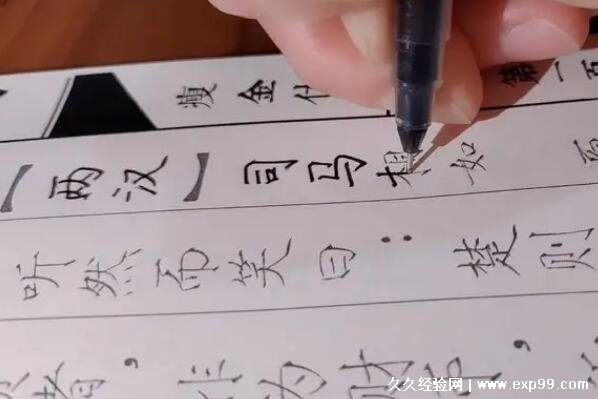 瘦金 第一
【两汉】司马相如
听然而笑曰：楚则
者，非为财币，
久久经验网 | www.exp99.com